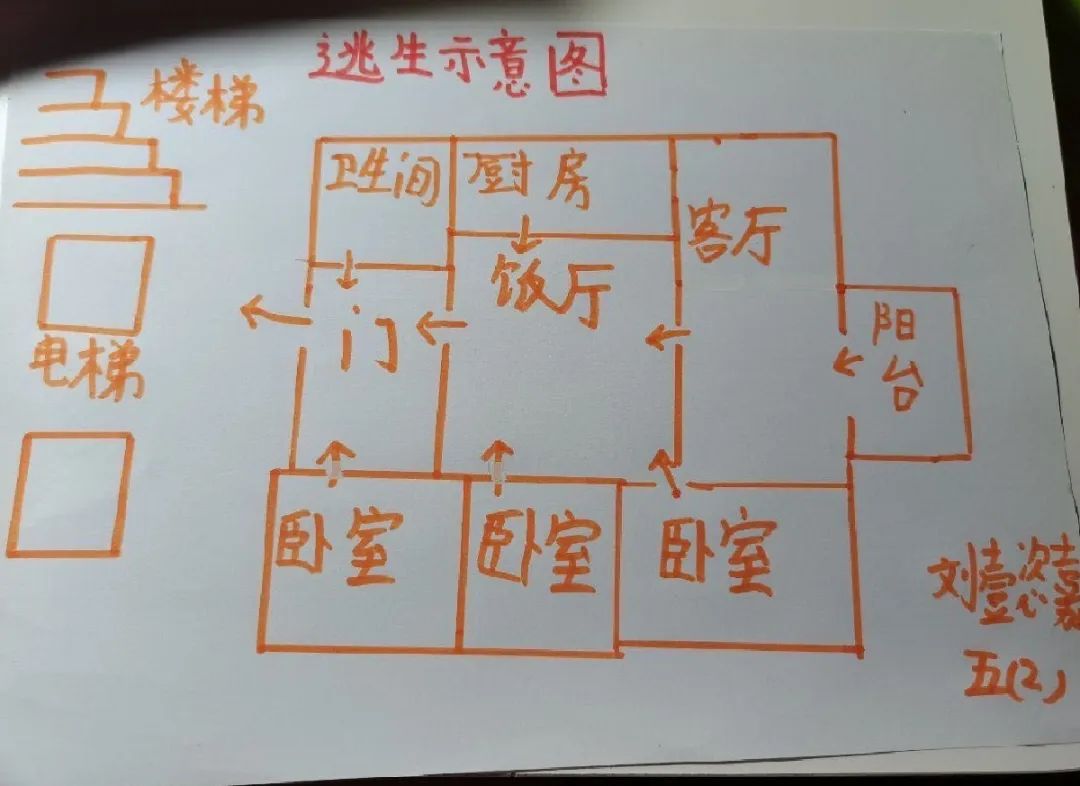 逃生示意图
楼梯
卫生间
厨房
客厅
饭厅
电梯
门
阳台
卧室
卧室
卧室
刘壹
五(2)